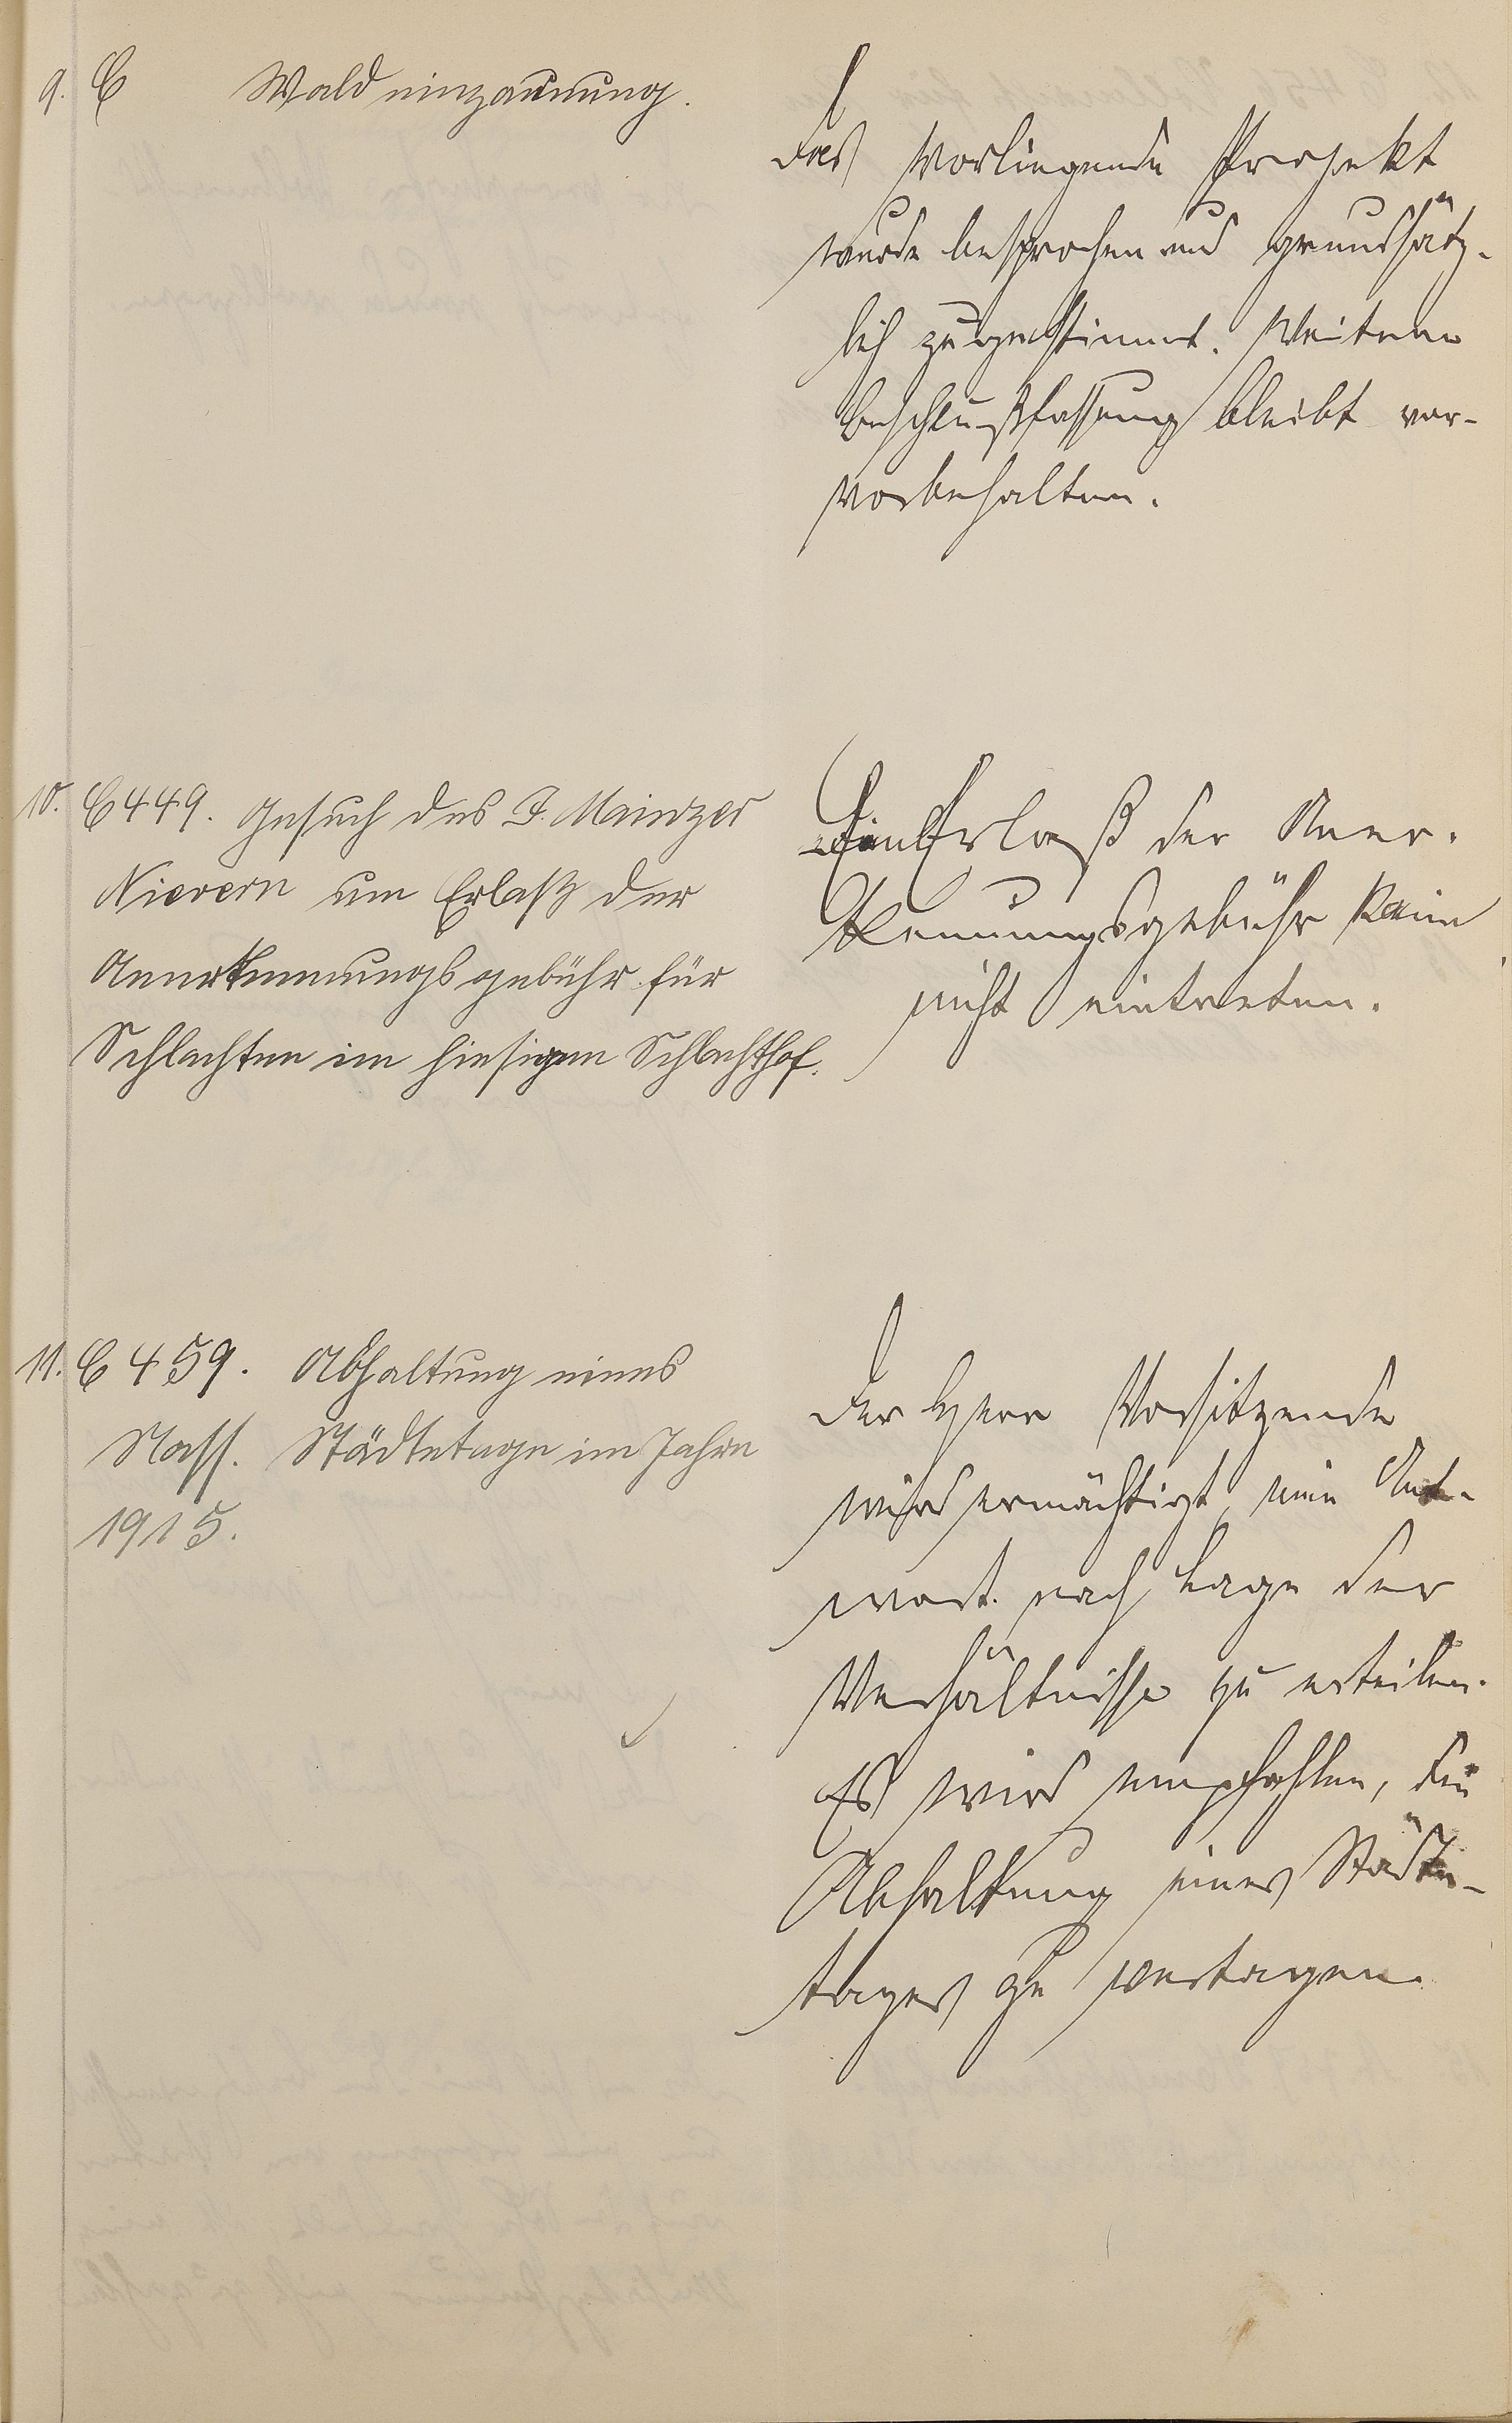 9. C Waldeinzäunung.
Das vorliegende Projekt
wurde besprochen und grundsätz-
lich zugestimmt. Weitere
Beschlußfassung bleibt vor-
vorbehalten.
10. C 449. Gesuch des J. Mainzer
Nievern um Erlaß der
Anerkennungsgebühr für
Schlachten im hiesigen Schlachthof.
Ein Erlaß der Aner-
kennungsgebühr kann
nicht eintreten.
11. C 459. Abhaltung eines
Nass. Städtetage im Jahre
1915.
Der Herr Vorsitzende
wird ermächtigt, eine Ant-
wort nach Lage der
Verhältnisse zu erteilen.
Es wird empfohlen, die
Abhaltung eines Städte-
tages zu vertagen.